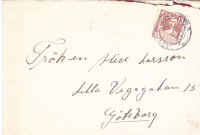 Fröken Lise Larsson
Lilla Vegagatan 15
Göteborg